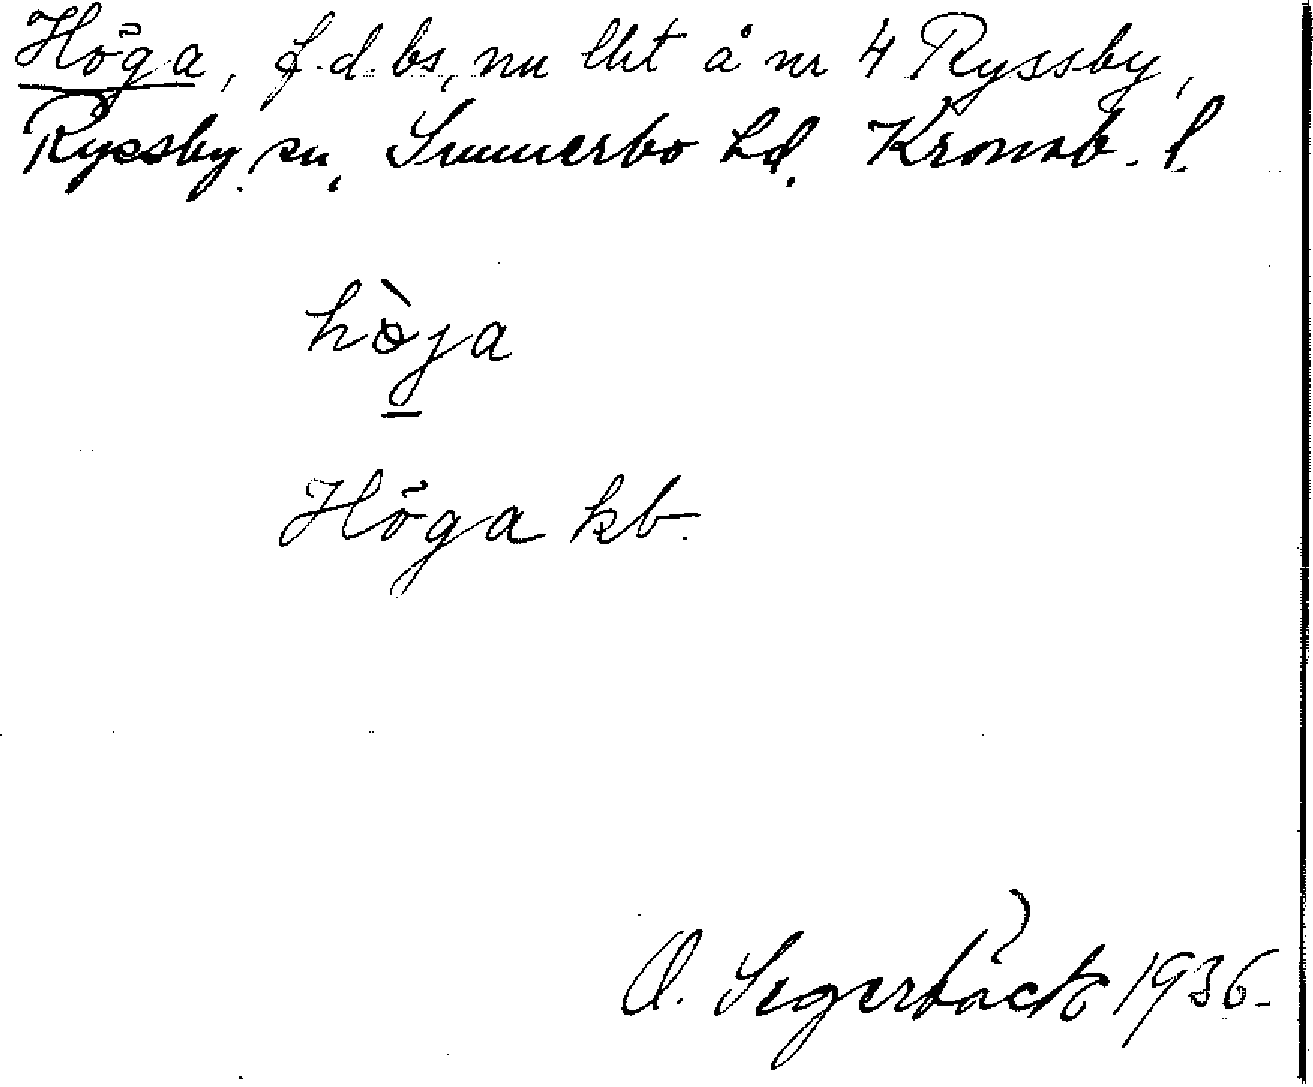 Höga, f.d. bs, nu lht å nr 4 Ryssby,
Ryssby sn, Sunnerbo hd. Kronob. l.
hò̤ja
Höga kb.
O. Segerbäck 1936.